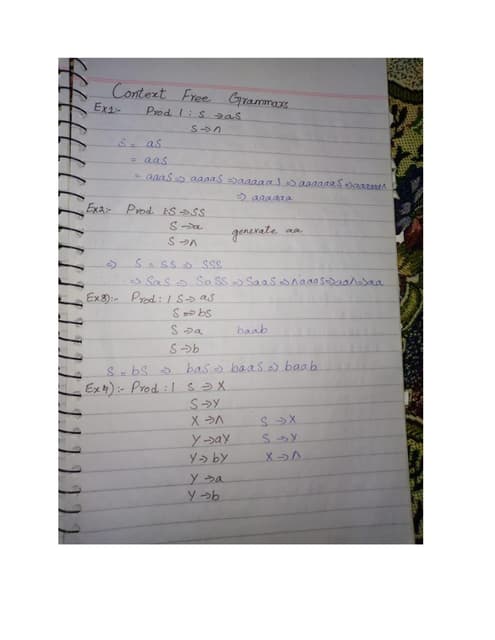 Context Free Grammars
Ex1:- Prod 1 : S → aS
S → Λ
S = aS
= aaS
= aaaS ⇒ aaaaS ⇒ aaaaaS ⇒ aaaaaaS ⇒ aaaaaaΛ
⇒ aaaaaa
Ex2:- Prod 1: S → SS
S → a generate aa
S → Λ
⇒ S = SS ⇒ SSS
⇒ SaS ⇒ SaSS ⇒ SaaS ⇒ ΛaaS ⇒ aaΛ ⇒ aa
Ex3):- Prod : 1 S → aS
S → bS
S → a baab
S → b
S = bS ⇒ baS ⇒ baaS ⇒ baab
Ex4):- Prod : 1 S → X
S → Y
X → Λ S → X
Y → aY S → Y
Y → bY X → Λ
Y → a
Y → b